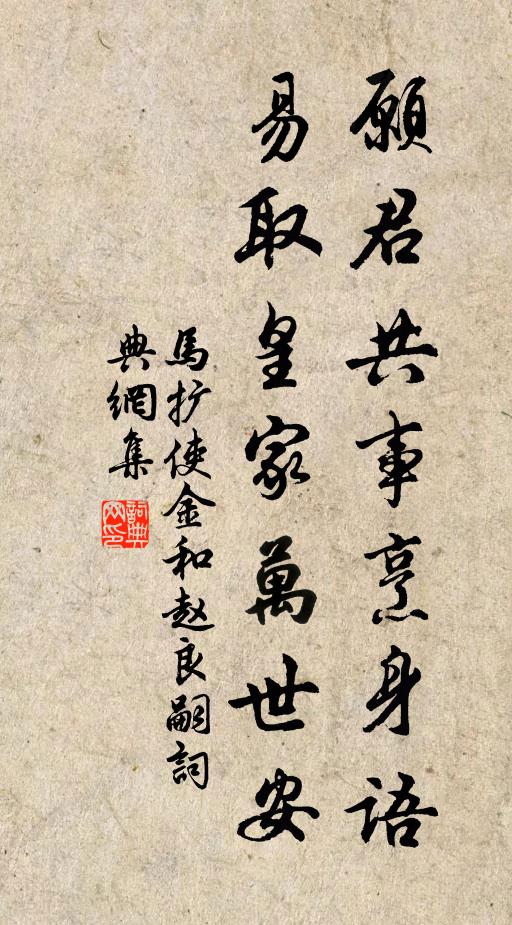 願君共事烹身語
易取皇家萬世安
馬扩使金和赵良嗣詞
典網集
詞典
网印